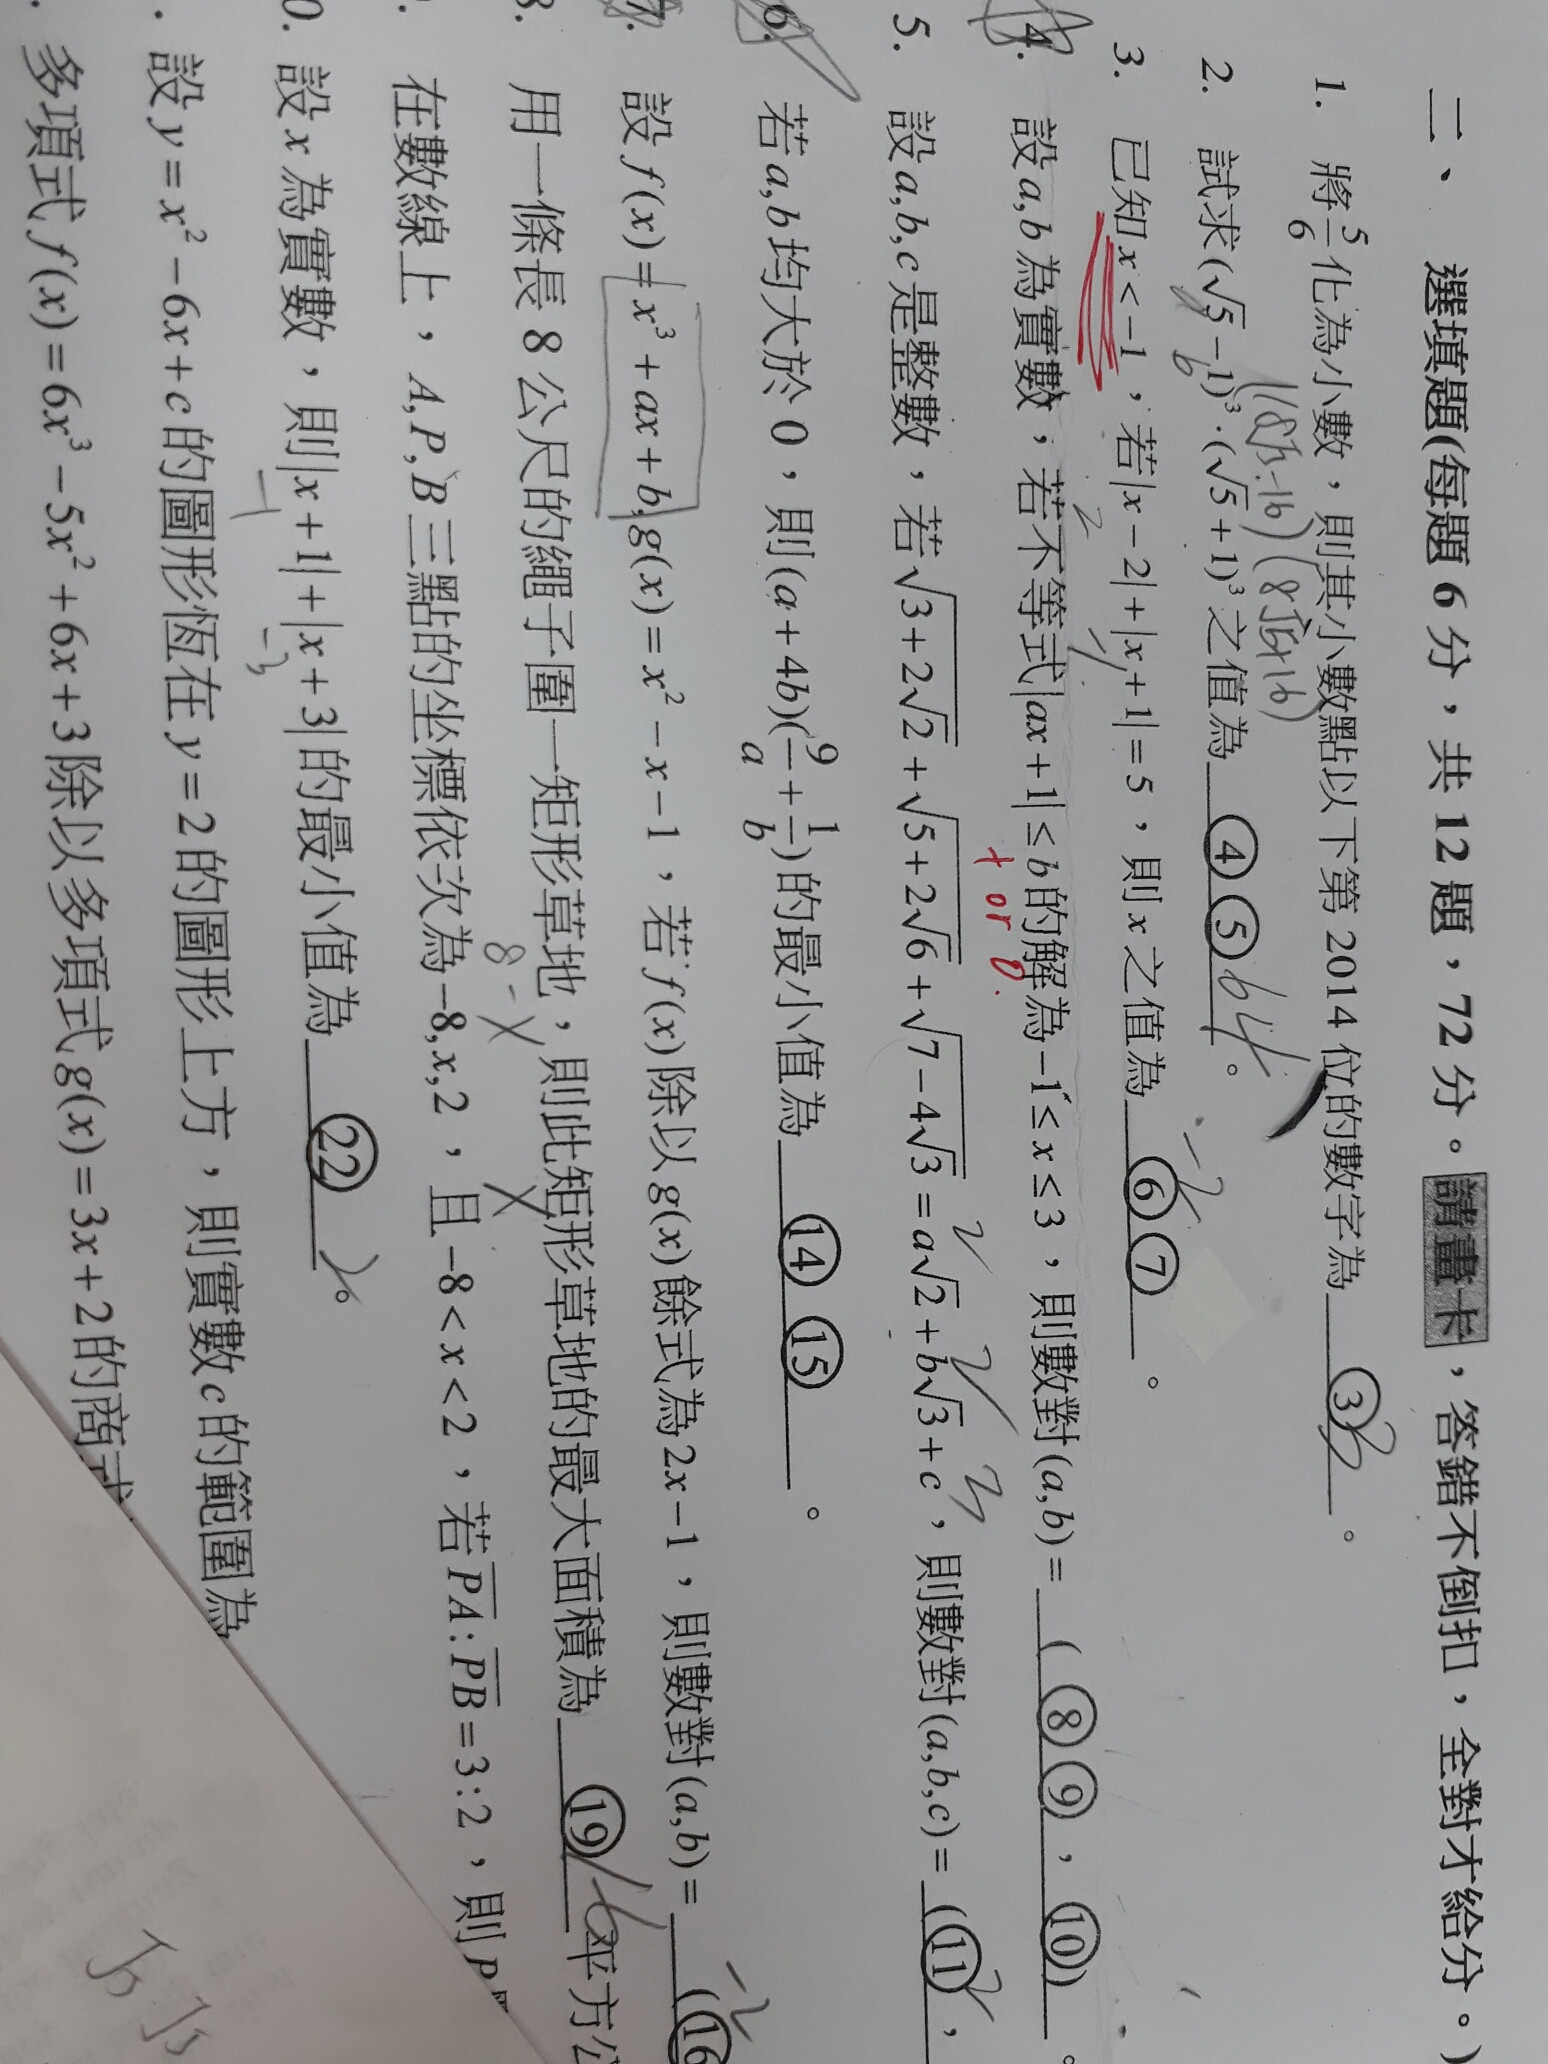 二、選填題(每題 6 分，共 12 題，72 分。請畫卡，答錯不倒扣，全對才給分。)
1. 將5/6化為小數，則其小數點以下第 2014 位的數字為 ③ 。
(8√5-16)(8√5+16)
2. 試求(√5-1)³·(√5+1)³之值為 ④⑤ 。 64
3. 已知x<-1，若|x-2|+|x+1|=5，則x之值為 ⑥⑦ 。 -2
4. 設a,b為實數，若不等式|ax+1|≤b的解為-1≤x≤3，則數對(a,b)= (⑧⑨，⑩) 。
+ or 0.
5. 設a,b,c是整數，若√(3+2√2)+√(5+2√6)+√(7-4√3)=a√2+b√3+c，則數對(a,b,c)= (⑪，
6. 若a,b均大於0，則(a+4b)(9/a+1/b)的最小值為 ⑭⑮ 。
7. 設f(x)=x³+ax+b,g(x)=x²-x-1，若f(x)除以g(x)餘式為2x-1，則數對(a,b)= (⑯
8. 用一條長 8 公尺的繩子圍一矩形草地，則此矩形草地的最大面積為 ⑲ 平方公
8-x x
. 在數線上，A,P,B三點的坐標依次為-8,x,2，且-8<x<2，若PA:PB=3:2，則P
0. 設x為實數，則|x+1|+|x+3|的最小值為 ㉒ 。
-1 -3
. 設y=x²-6x+c的圖形恆在y=2的圖形上方，則實數c的範圍為
. 多項式f(x)=6x³-5x²+6x+3除以多項式g(x)=3x+2的商式